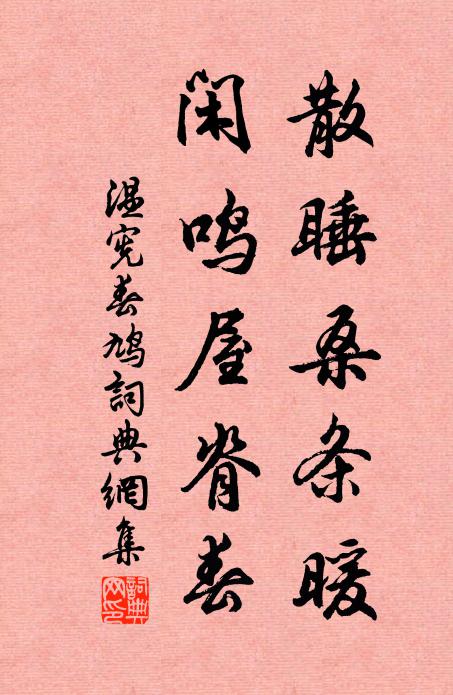 散睡桑条暖
闲鸣屋脊春
温宪春鸠詞典網集
詞典